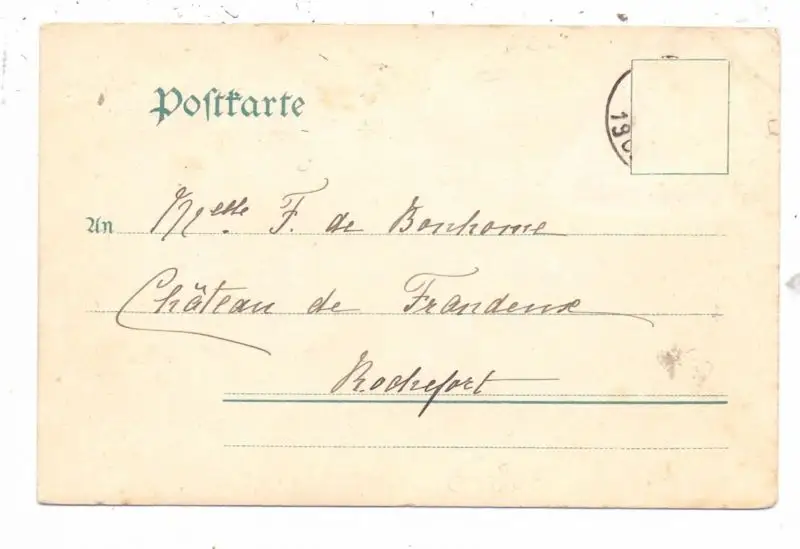 Postkarte
190
An Melle F. de Bonhome
Château de Frandeux
Rochefort